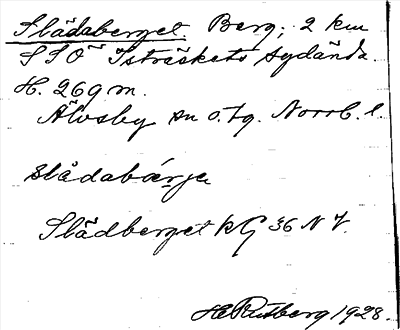 Slädaberget. Berg; 2 km
SSO Isträskets sydända.
H. 269 m.
Älvsby sn o. tg. Norrb. l.
slådabärje
Slädberget kG 36 N V.
HE Rutberg 1928.